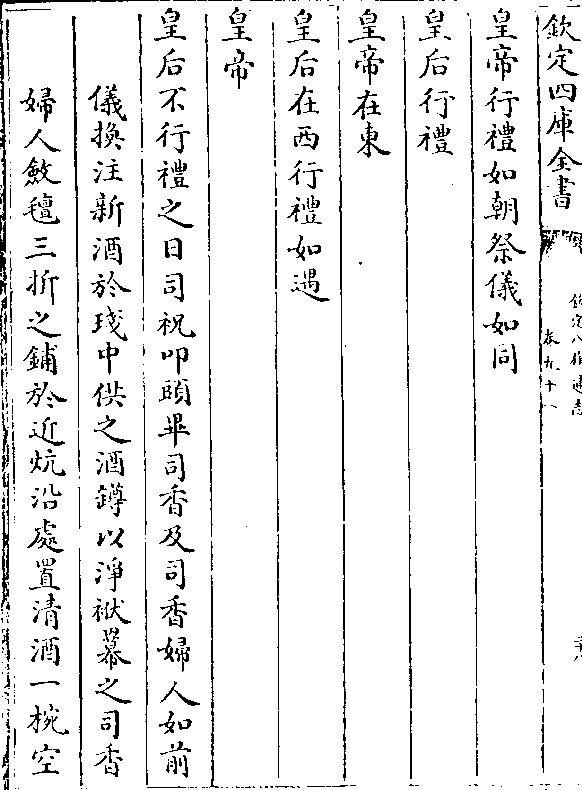 欽定四庫全書
皇帝行禮如朝祭儀如同
皇后行禮
皇帝在東
皇后在西行禮如遇
皇帝
皇后不行禮之日司祝叩頭畢司香及司香婦人如前
儀換注新酒於琖中供之酒罇以淨袱羃之司香
婦人斂氊三折之鋪於近炕沿處置清酒一椀空